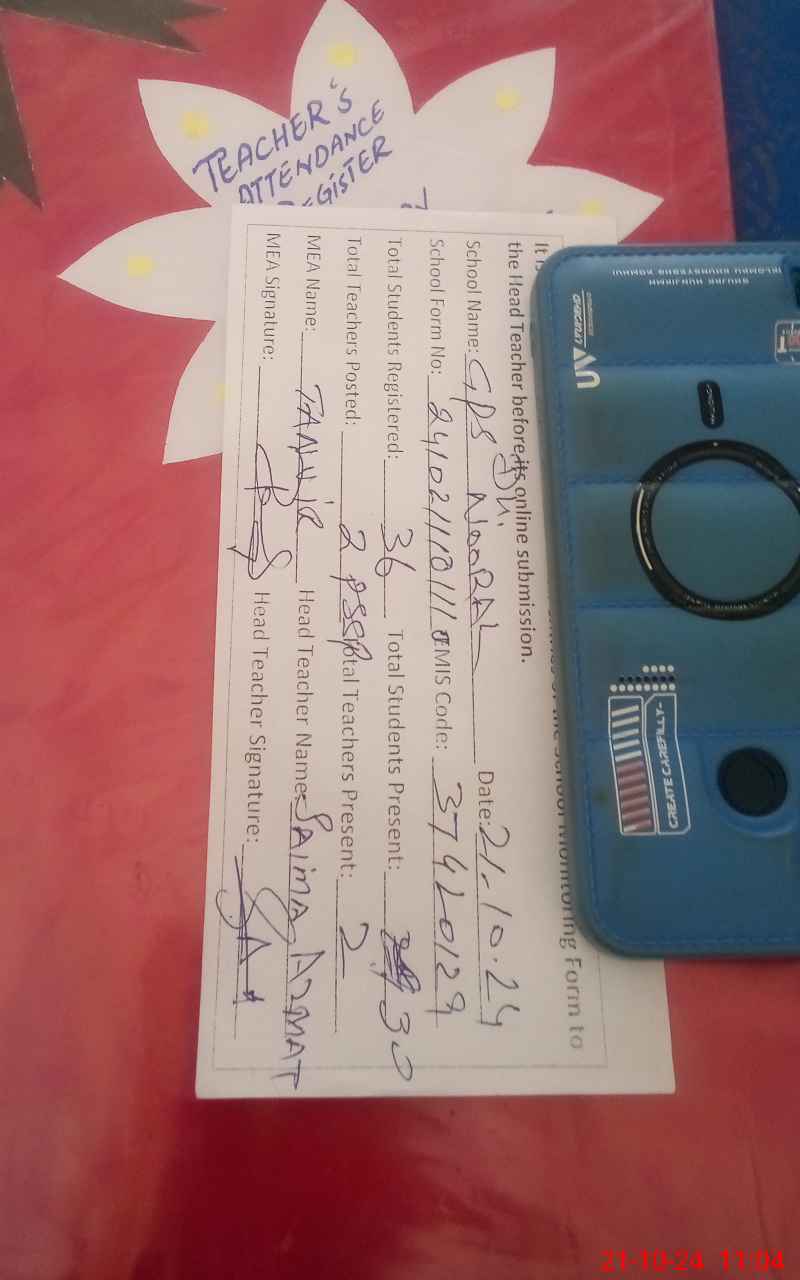 TEACHER'S
ATTENDANCE
REGISTER
It is
School Monitoring Form to
the Head Teacher before its online submission.
School Name: GPS Dh. NOORAL Date: 21-10-24
School Form No: EMIS Code: 37420129
Total Students Registered: 36 Total Students Present: 30
Total Teachers Posted: 2 Total Teachers Present: 2
MEA Name: TANVIR Head Teacher Name: SAIMA AZMAT
MEA Signature: Head Teacher Signature:
CREATE CAREFILLY-
21-10-24 11:04